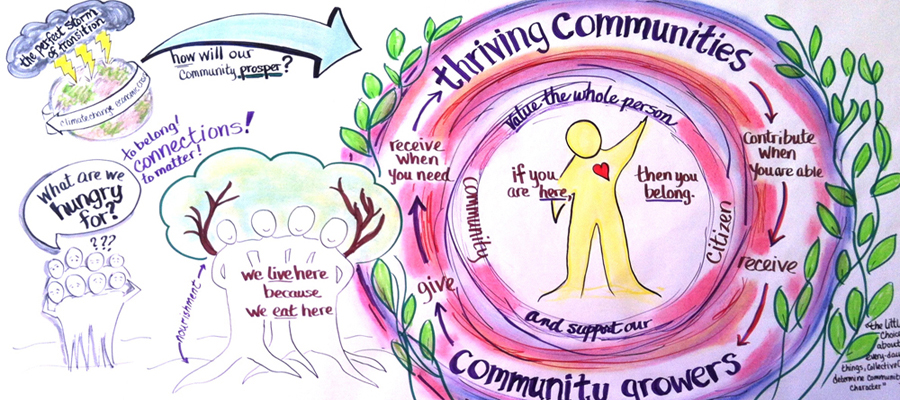 the perfect storm
of transition
Climate change, economic
how will our
Community prosper?
to belong!
connections!
to matter!
What are we
hungry
for?
???
nourishment
we live here
because
we eat here
thriving Communities
Contribute
when
you are able
receive
Community growers
give
receive
when
you need
value the whole person
Citizen
and support our
community
if you
are here,
then you
belong.
"the littl
Choic
about
every-day
things, Collectivel
determine Community
Character"